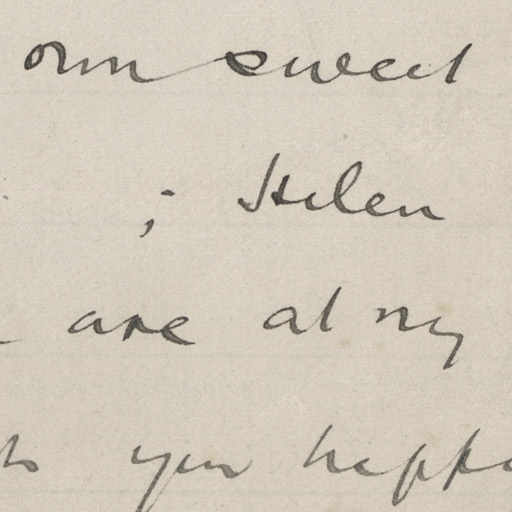 own sweet
;- Helen
are at my
your happ